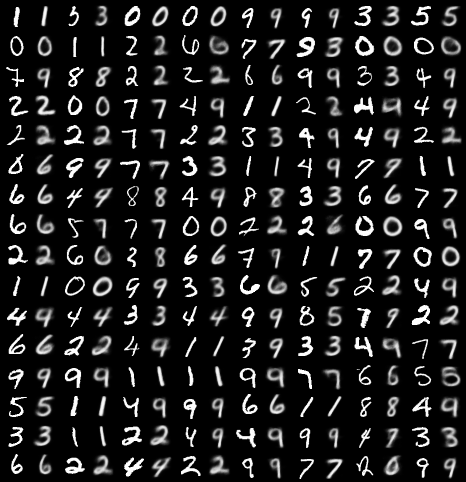 1 1 5 3 0 0 0 0 9 9 9 9 3 3 5 5
0 0 1 1 2 2 6 6 7 7 9 3 0 0 0 0
7 9 8 8 2 2 2 2 6 6 9 9 3 3 4 9
2 2 0 0 7 7 4 9 1 1 2 2 4 9 4 9
2 2 2 2 7 7 2 2 3 3 4 9 4 9 2 2
6 9 9 7 7 3 3 1 1 4 9 7 9 1 1
6 6 4 4 8 8 4 9 8 8 3 3 6 6 7 7
6 6 5 7 7 7 0 0 7 2 2 6 0 0 9 9
2 2 6 0 3 8 6 6 7 9 1 1 7 7 0 0
1 1 0 0 9 9 3 3 6 6 5 5 2 2 4 9
4 9 4 4 3 3 4 4 9 9 8 5 7 9 2 2
6 6 2 2 4 9 1 1 3 9 3 3 4 9 7 7
9 9 9 9 1 1 1 1 9 9 7 7 6 6 5 5
5 5 1 1 4 9 9 9 6 6 1 1 8 8 4 9
3 3 1 1 2 2 4 9 4 9 9 9 4 7 3 3
6 6 2 2 4 4 2 2 9 9 7 7 2 0 9 9